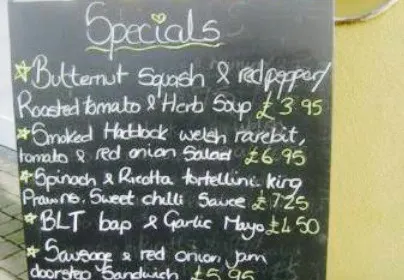 Specials
Butternut Squash & red pepper/
Roasted tomato & Herb Soup £3.95
Smoked Haddock welsh rarebit,
tomato & red onion Salad £6.95
Spinach & Ricotta tortellini king
Prawns. Sweet chilli Sauce £7.25
BLT bap & Garlic Mayo £4.50
Sausage & red onion jam
doorstep Sandwich £5.95